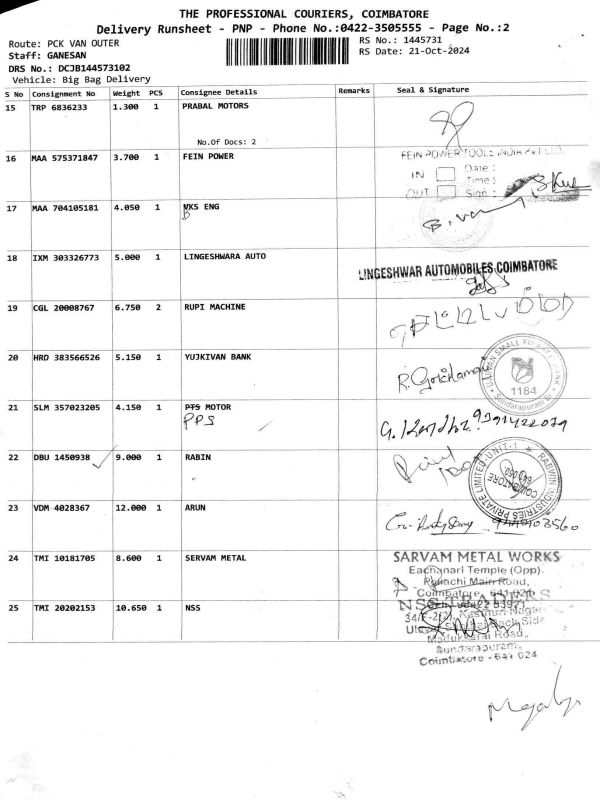 THE PROFESSIONAL COURIERS, COIMBATORE
Delivery Runsheet - PNP - Phone No.:0422-3505555 - Page No.:2
Route: PCK VAN OUTER
RS No.: 1445731
Staff: GANESAN
RS Date: 21-Oct-2024
DRS No.: DCJB144573102
Vehicle: Big Bag Delivery
S No Consignment No Weight PCS Consignee Details Remarks Seal & Signature
15 TRP 6836233 1.300 1 PRABAL MOTORS
No.Of Docs: 2
16 MAA 575371847 3.700 1 FEIN POWER
FEIN POWER TOOLS INDIA PVT LTD.
IN Date :
Time :
OUT Sign :
17 MAA 704105181 4.050 1 VKS ENG
18 IXM 303326773 5.000 1 LINGESHWARA AUTO
LINGESHWAR AUTOMOBILES,COIMBATORE
19 CGL 20008767 6.750 2 RUPI MACHINE
20 HRD 383566526 5.150 1 YUJKIVAN BANK
1184
Sundarapuram
21 SLM 357023205 4.150 1 PTS MOTOR
PPS
22 DBU 1450938 9.000 1 RABIN
RABWIN INDUSTRIES PRIVATE LIMITED UNIT-1
COIMBATORE
23 VDM 4028367 12.000 1 ARUN
24 TMI 10181705 8.600 1 SERVAM METAL
SARVAM METAL WORKS
Eachanari Temple (Opp).
Main Road,
Coimbatore - 641 021
25 TMI 20202153 10.650 1 NSS
NSS TRADERS
Madukkarai Road,
Sundarapuram,
Coimbatore - 641 024